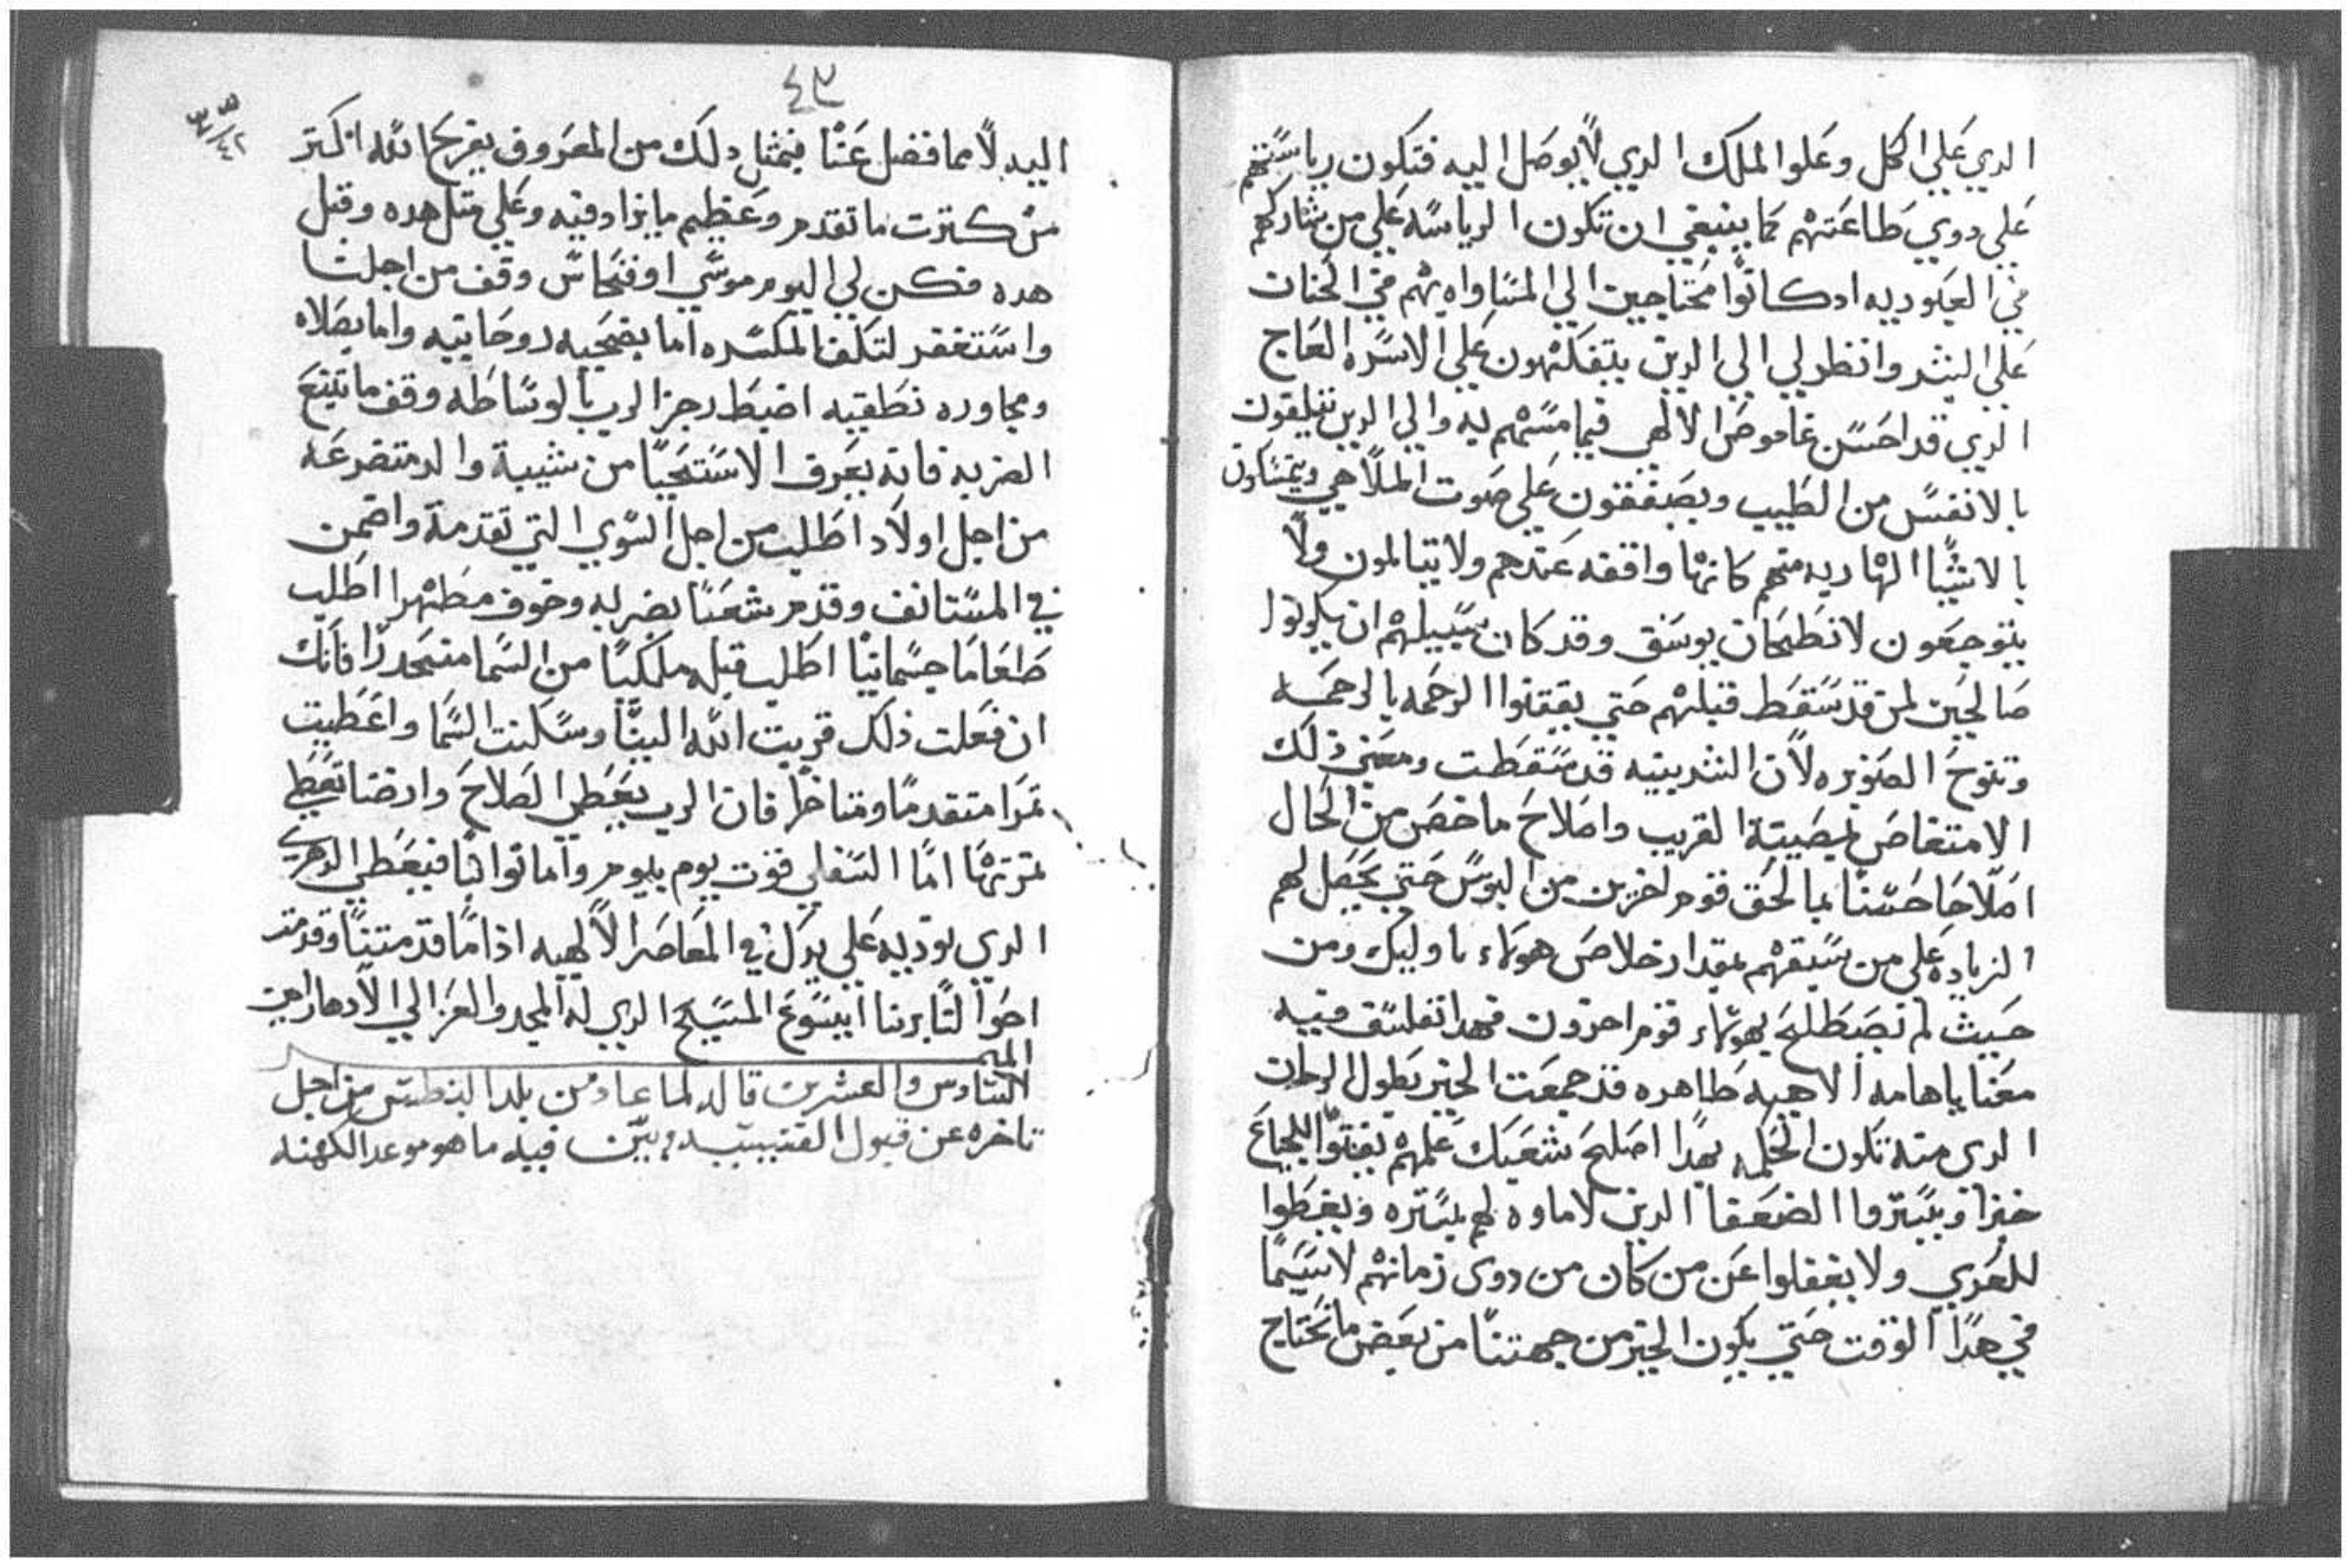 الدي علي الكل وعلوا الملك الدي لا يوصل اليه فتكون رياستهم
علي دوي طاعتهم كما ينبغي ان تكون الرياسه علي من شاركهم
في العبوديه ادكانوا محتاجين الي المساواه بهم في الحنات
علي البشر وانظر لي الي الدين يتفكهون علي الاسره العاج
الدي قد احسن غاموض الالهي فيما مسهم به والي الدين
بالانفس من الطيب ويصفقون علي صوت الملاهي ويتمسكون
بالاشيا الهاربه منهم كانها واقفه عندهم ولا يتالمون ولا
يتوجعون لانطحان يوسف وقد كان سبيلهم ان يكونوا
صالحين لمن قد سقط قبلهم حتي يقتنوا الرحمه بالرحمه
وتنوح الصنوبره لان الشربينه قد سقطت ومعني ذلك
الامتعاص بمصيبة القريب واصلاح ماخص من الحال
املاحا حسنا بما لحق قوم اخرين من البوس حتي يحصل لهم
الزياده علي من سبقهم بمقدار خلاص هولاء باوليك ومن
حيث لم تصطلح بهولاء قوم اخرون فهدا تفلسف فيه
معنا ياهامه الاهيه طاهره قد جمعت الخير بطول الزمان
الدي منه تكون الحكمه بهدا اصلح شعبك علمهم يفتوا للجياع
خبزا ويستروا الضعفا الدين لاماوه لهم بستره ويغطوا
للعري ولا يغفلوا عن من كان من دوى زمانهم لاسيما
في هدا الوقت حتي يكون الخير من جهتنا من بعض مانحتاج
٤٣
اليه لا مما فضل عنا فبمثل دلك من المعروف يفرح الله اكتر
من كترت ماتقدم وعظيم مايزاد فيه وعلي متل هده وقبل
هده فكن لي اليوم موسي او فنحاس وقف من اجلنا
واستغفر لتكف المكسره اما بضحيه روحانيه واما بصلاه
ومجاوره نطقيه اضبط رجز الرب بالوساطه وقف ماتتبع
الضربه فانه يعرف الاستحيا من شيبة والد متضرعه
من اجل اولاد اطلب من اجل السوي التي تقدمة واضمن
في المستانف وقدم شعبنا بضربه وخوف مطهرا اطلب
طعاما جسمانيا اطلب قبله ملكيا من السما منحدرا فانك
ان فعلت ذلك قربت الله الينا وسكنت السما واعطيت
مطرا متقدما ومتاخرا فان الرب يعطي الصلاح وارضنا تعطي
تمرتها اما السفلي فقوت يوم بيوم واما توابنا فيعطي الدهري
الدي توديه علي يدك في المعاصر الالهيه اذا ما قدمتنا وقدمت
احوالنا بربنا ايسوع المسيح الدي له المجد والعز الي الادهار امين
السادس والعشرين قاله لما عاد من بلد البنطس من اجل
تاخره عن قبول القسيسيه وبين فيه ماهو موعد الكهنه